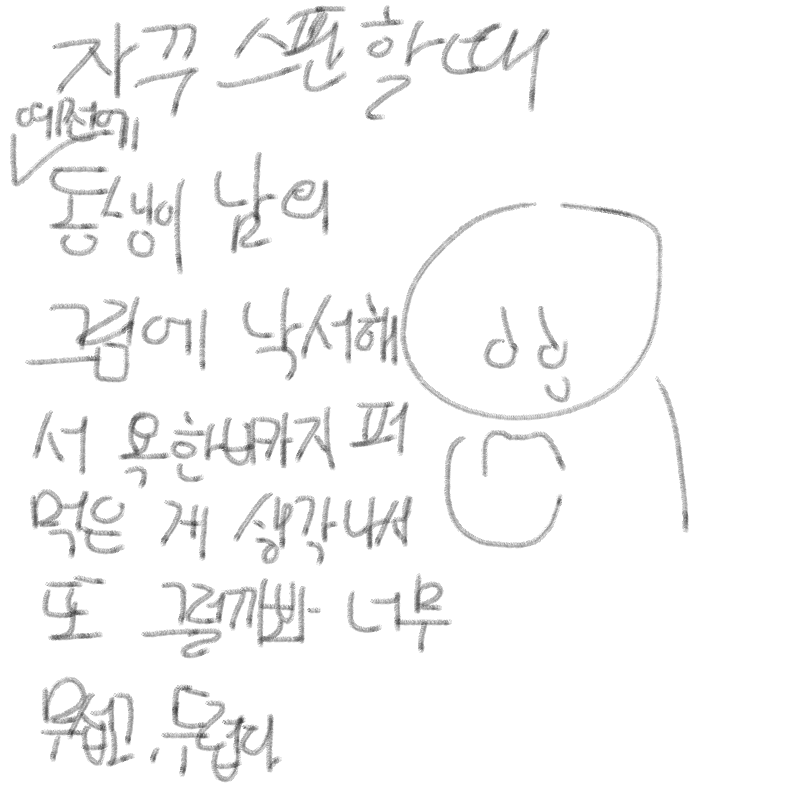 자꾸 스펀할때
예전에
동생이 남의
그림에 낙서해
서 욕한바가지 퍼
먹은 게 생각나서
또 그럴까봐 너무
무섭고, 두렵다